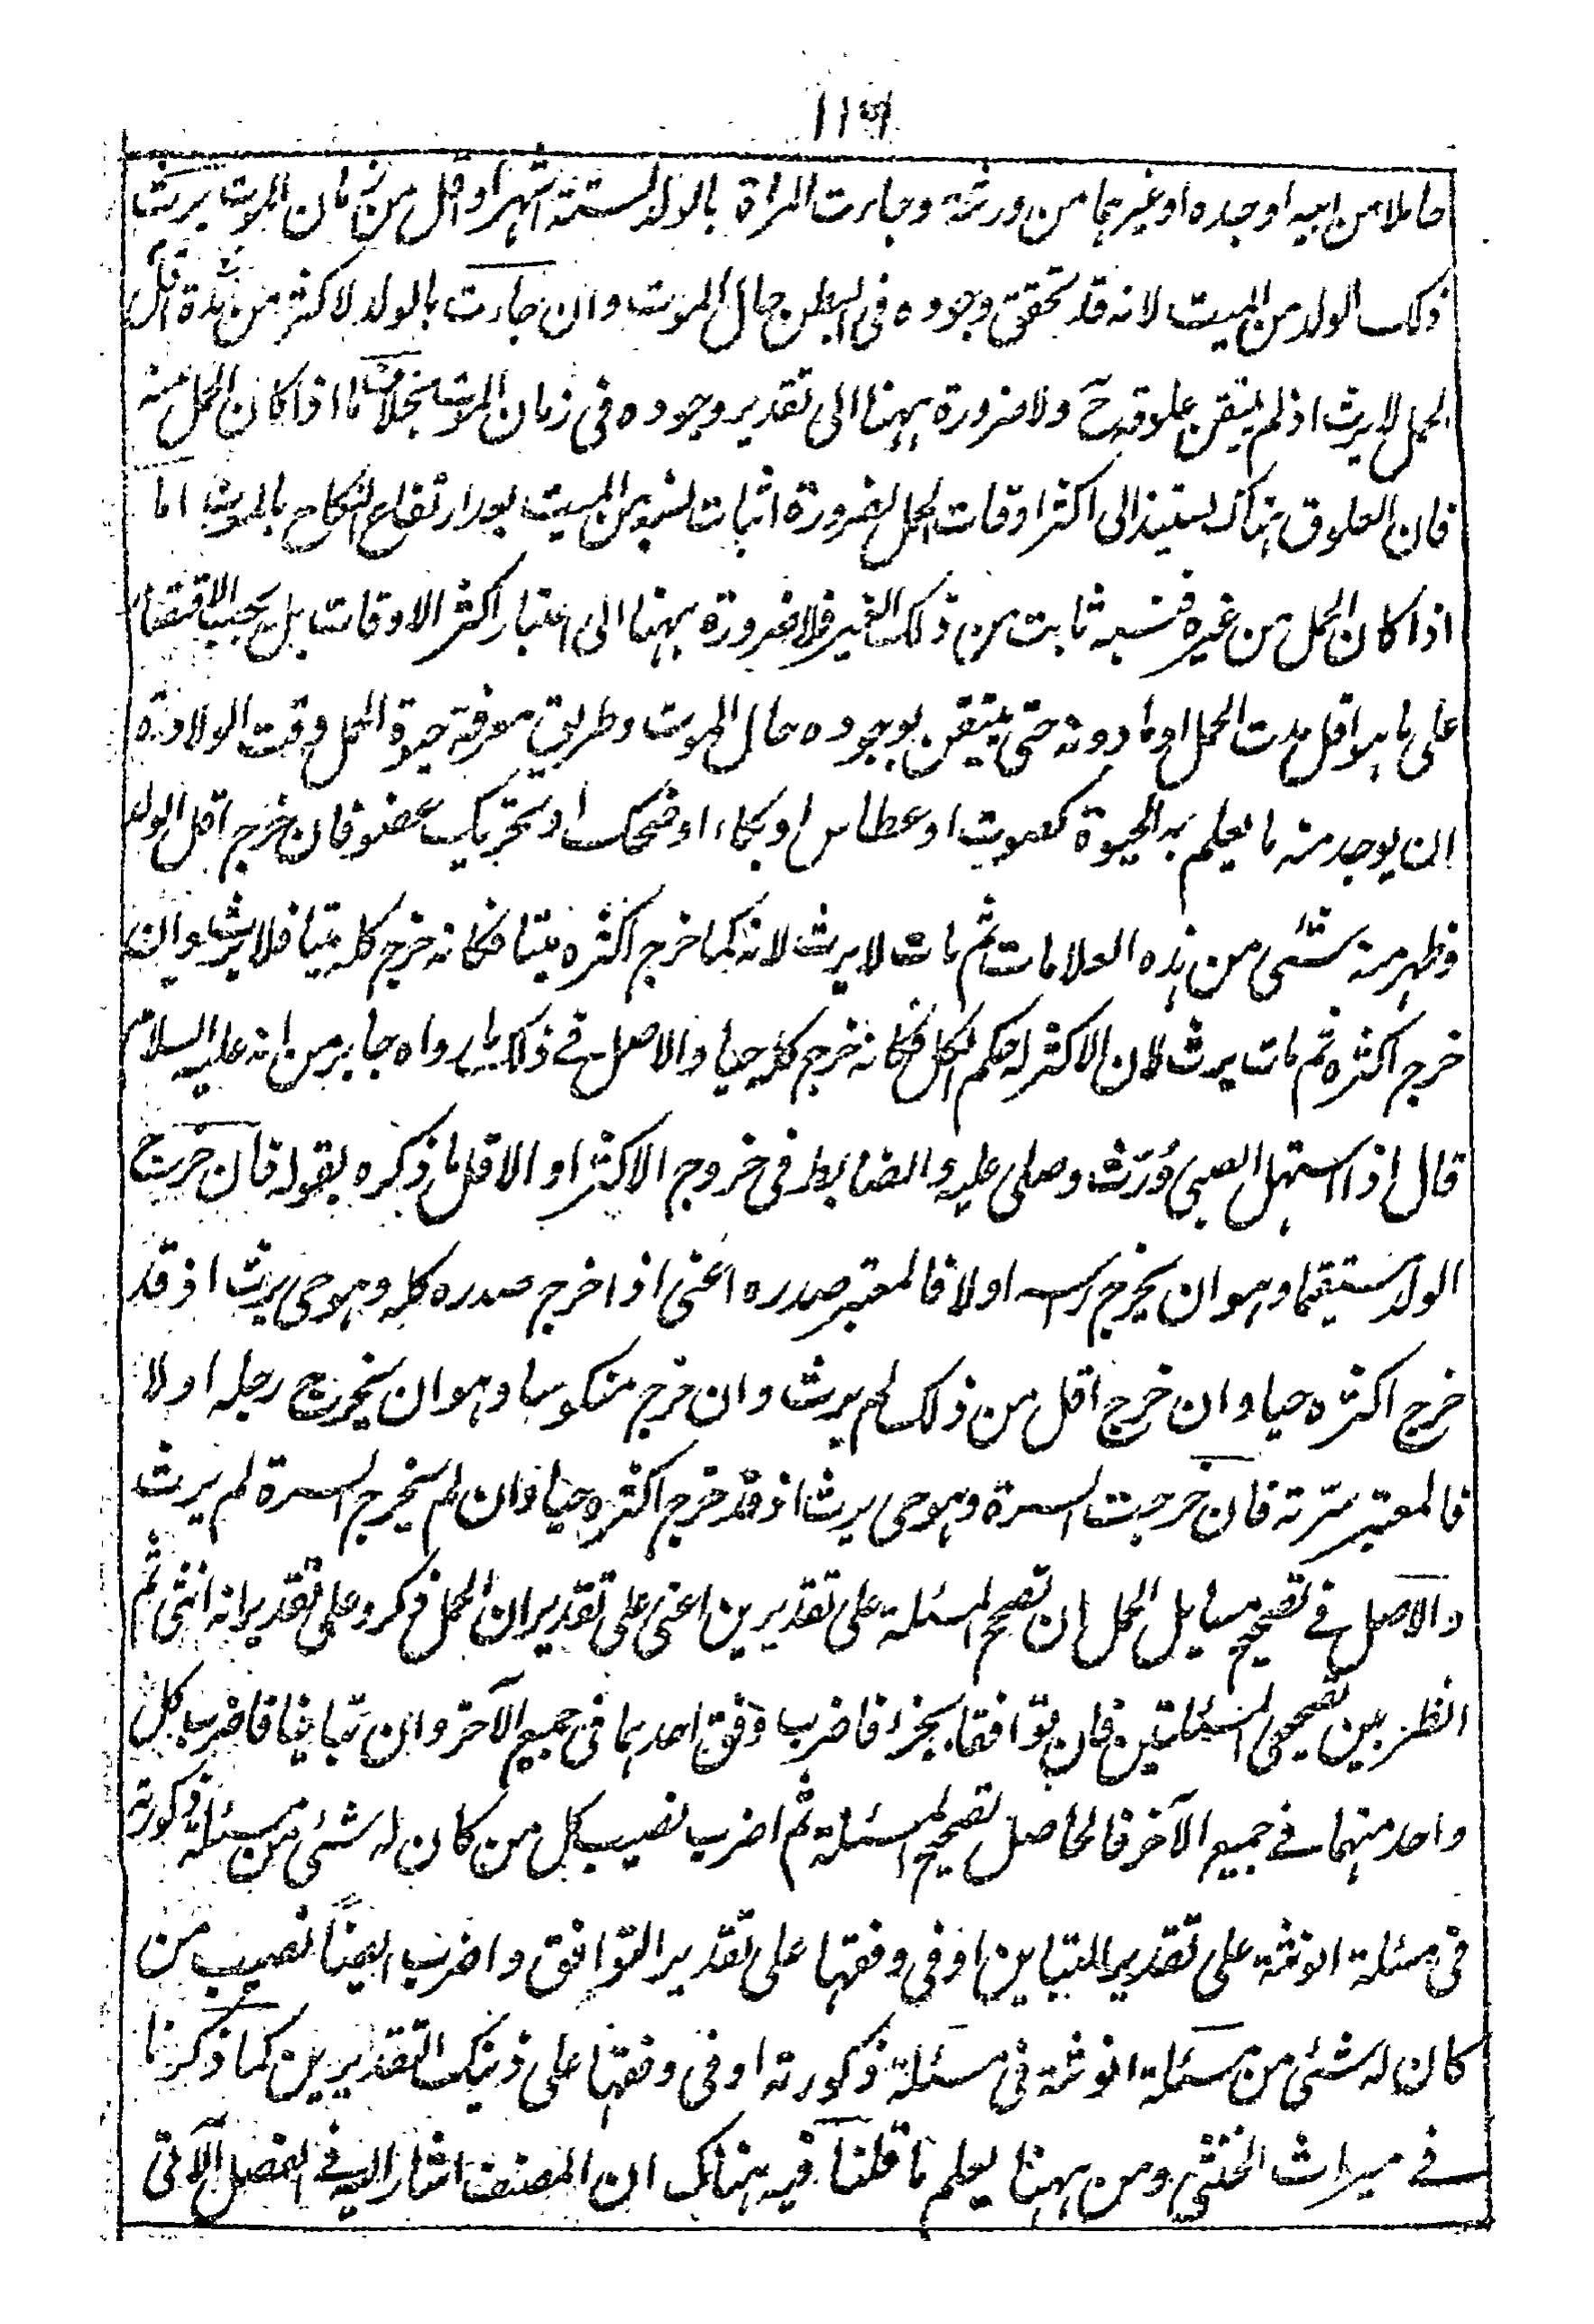 ۱۱۶
حاملا من ابيه او جده او غيرهما من ورثته وجاءت المراة بالولد لستة اشهر او اقل من زمان الموت يرث
ذلك الولد من الميت لانه قد تحقق وجوده فى البطن حال الموت وان جاءت بالولد لاكثر من مدة اقل
الحمل لا يرث اذ لم يتيقن علوقه ح ولا ضرورة ههنا الى تقدير وجوده فى زمان الموت بخلاف ما اذا كان الحمل منه
فان العلوق هناك يستند الى اكثر اوقات الحمل لضرورة اثبات نسبه من الميت بعد ارتفاع النكاح بالموت اما
اذا كان الحمل من غيره فنسبه ثابت من ذلك الغير فلا ضرورة ههنا الى اعتبار اكثر الاوقات بل يجب الاقتصار
على ما هو اقل مدت الحمل او ما دونه حتى يتيقن بوجوده حال الموت وطريق معرفة حيوة الحمل وقت الولادة
ان يوجد منه ما يعلم به الحيوة كصوت او عطاس او بكاء او ضحك او تحريك عضو فان خرج اقل الولد
وظهر منه شئى من هذه العلامات ثم مات لا يرث لانه لما خرج اكثره ميتا فكانه خرج كله ميتا فلا يرث وان
خرج اكثره ثم مات يرث لان الاكثر له حكم الكل فكانه خرج كله حيا والاصل فى ذلك ما رواه جابر من انه عليه السلام
قال اذا استهل الصبى وُرّث وصلى عليه والضابط فى خروج الاكثر او الاقل ما ذكره بقوله فان خرج
الولد مستقيما وهو ان يخرج راسه اولا فالمعتبر صدره اعنى اذا خرج صدره كله وهو حى يرث اذ قد
خرج اكثره حيا وان خرج اقل من ذلك لم يرث وان خرج منكوسا وهو ان يخرج رجله اولا
فالمعتبر سرّته فان خرجت السرة وهو حى يرث اذ قد خرج اكثره حيا وان لم يخرج السرة لم يرث
والاصل فى تصحيح مسايل الحمل ان تصحح المسئلة على تقديرين اعنى على تقدير ان الحمل ذكر وعلى تقدير انه انثى ثم
انظر بين تصحيحى المسئلتين فان توافقا بجزء فاضرب وفق احدهما فى جميع الآخر وان تباينا فاضرب كل
واحد منهما فى جميع الآخر فالحاصل تصحيح المسئلة ثم اضرب نصيب كل من كان له شئى من مسئلة ذكورته
فى مسئلة انوثته على تقدير التباين او فى وفقها على تقدير التوافق واضرب ايضاً نصيب من
كان له شئى من مسئلة انوثته فى مسئلة ذكورته او فى وفقها على ذينك التقديرين كما ذكرنا
فى ميراث الخنثى ومن ههنا يعلم ما قلنا فيه هناك ان المصنف اشار اليه فى الفصل الآتى